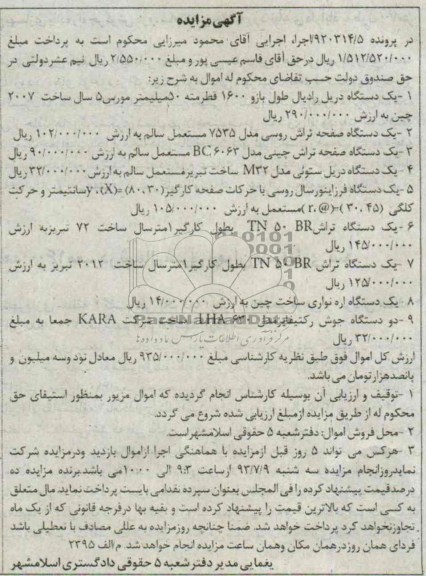 آگهی مزایده
در پرونده ۹۲۰۳۱۴/۵اجرا، اجرایی آقای محمود میرزایی محکوم است به پرداخت مبلغ
۱/۵۱۲/۵۲۰/۰۰۰ ریال درحق آقای قاسم عیسی پور و مبلغ ۲/۵۵۰/۰۰۰ ریال نیم عشردولتی در
حق صندوق دولت حسب تقاضای محکوم له اموال به شرح زیر:
۱ -یک دستگاه دریل رادیال طول بازو ۱۶۰۰ قطرمته ۵۰میلیمتر مورس۵ سال ساخت ۲۰۰۷
چین به ارزش ۲۹۰/۰۰۰/۰۰۰ ریال
۲ -یک دستگاه صفحه تراش روسی مدل ۷۵۳۵ مستعمل سالم به ارزش ۱۰۲/۰۰۰/۰۰۰ ریال
۳ -یک دستگاه صفحه تراش چینی مدل BC ۶۰۶۳ مستعمل سالم به ارزش ۹۰/۰۰۰/۰۰۰ ریال
۴ -یک دستگاه دریل ستونی مدل M۳۲ ساخت تبریزمستعمل سالم به ارزش ۳۲/۰۰۰/۰۰۰ ریال
۵ -یک دستگاه فرزاینورسال روسی با حرکات صفحه کارگیر(۸۰،۳۰)=(y،(X سانتیمتر و حرکت
کلگی (۳۰،۴۵)=(@،r )مستعمل به ارزش ۱۰۵/۰۰۰/۰۰۰ ریال
۶ -یک دستگاه تراش TN ۵۰ BR بطول کارگیر۱مترسال ساخت ۷۲ تبریزبه ارزش
۱۴۵/۰۰۰/۰۰۰ ریال
۷ -یک دستگاه تراش TN ۵۰ BR بطول کارگیر۱مترسال ساخت ۲۰۱۲ تبریز به ارزش
۱۲۵/۰۰۰/۰۰۰ ریال
۸ -یک دستگاه اره نواری ساخت چین به ارزش ۱۴/۰۰۰/۰۰۰ ریال
۹ -دو دستگاه جوش رکتیفایرمدل LHA ۶۳۰ ساخت شرکت KARA جمعا به مبلغ
۳۲/۰۰۰/۰۰۰ ریال
ارزش کل اموال فوق طبق نظریه کارشناسی مبلغ ۹۳۵/۰۰۰/۰۰۰ ریال معادل نود وسه میلیون و
پانصدهزارتومان می باشد.
۱ -توقیف و ارزیابی آن بوسیله کارشناس انجام گردیده که اموال مزبور بمنظور استیفای حق
محکوم له از طریق مزایده ازمبلغ ارزیابی شده شروع می گردد.
۲ -محل فروش اموال: دفترشعبه ۵ حقوقی اسلامشهراست.
۳ -هرکس می تواند ۵ روز قبل ازمزایده با هماهنگی اجرا ازاموال بازدید ودرمزایده شرکت
نمایدروزانجام مزایده سه شنبه ۹۳/۷/۹ ازساعت ۹:۳۰ الی ۱۰:۰۰می باشدبرنده مزایده ده
درصدقیمت پیشنهاد کرده را فی المجلس بعنوان سپرده بقدامی بایست پرداخت نماید.مال متعلق
به کسی است که بالاترین قیمت را پیشنهاد کرده است و بقیه بها درفرجه قانونی که از یک ماه
تجاوزنخواهد کرد پرداخت خواهد شد. ضمنا چنانچه روزمزایده به عللی مصادف با تعطیلی باشد
فردای همان روزدرهمان مکان وهمان ساعت مزایده انجام خواهدشد. م الف ۲۳۹۵
یغمایی مدیر دفترشعبه ۵ حقوقی دادگستری اسلامشهر